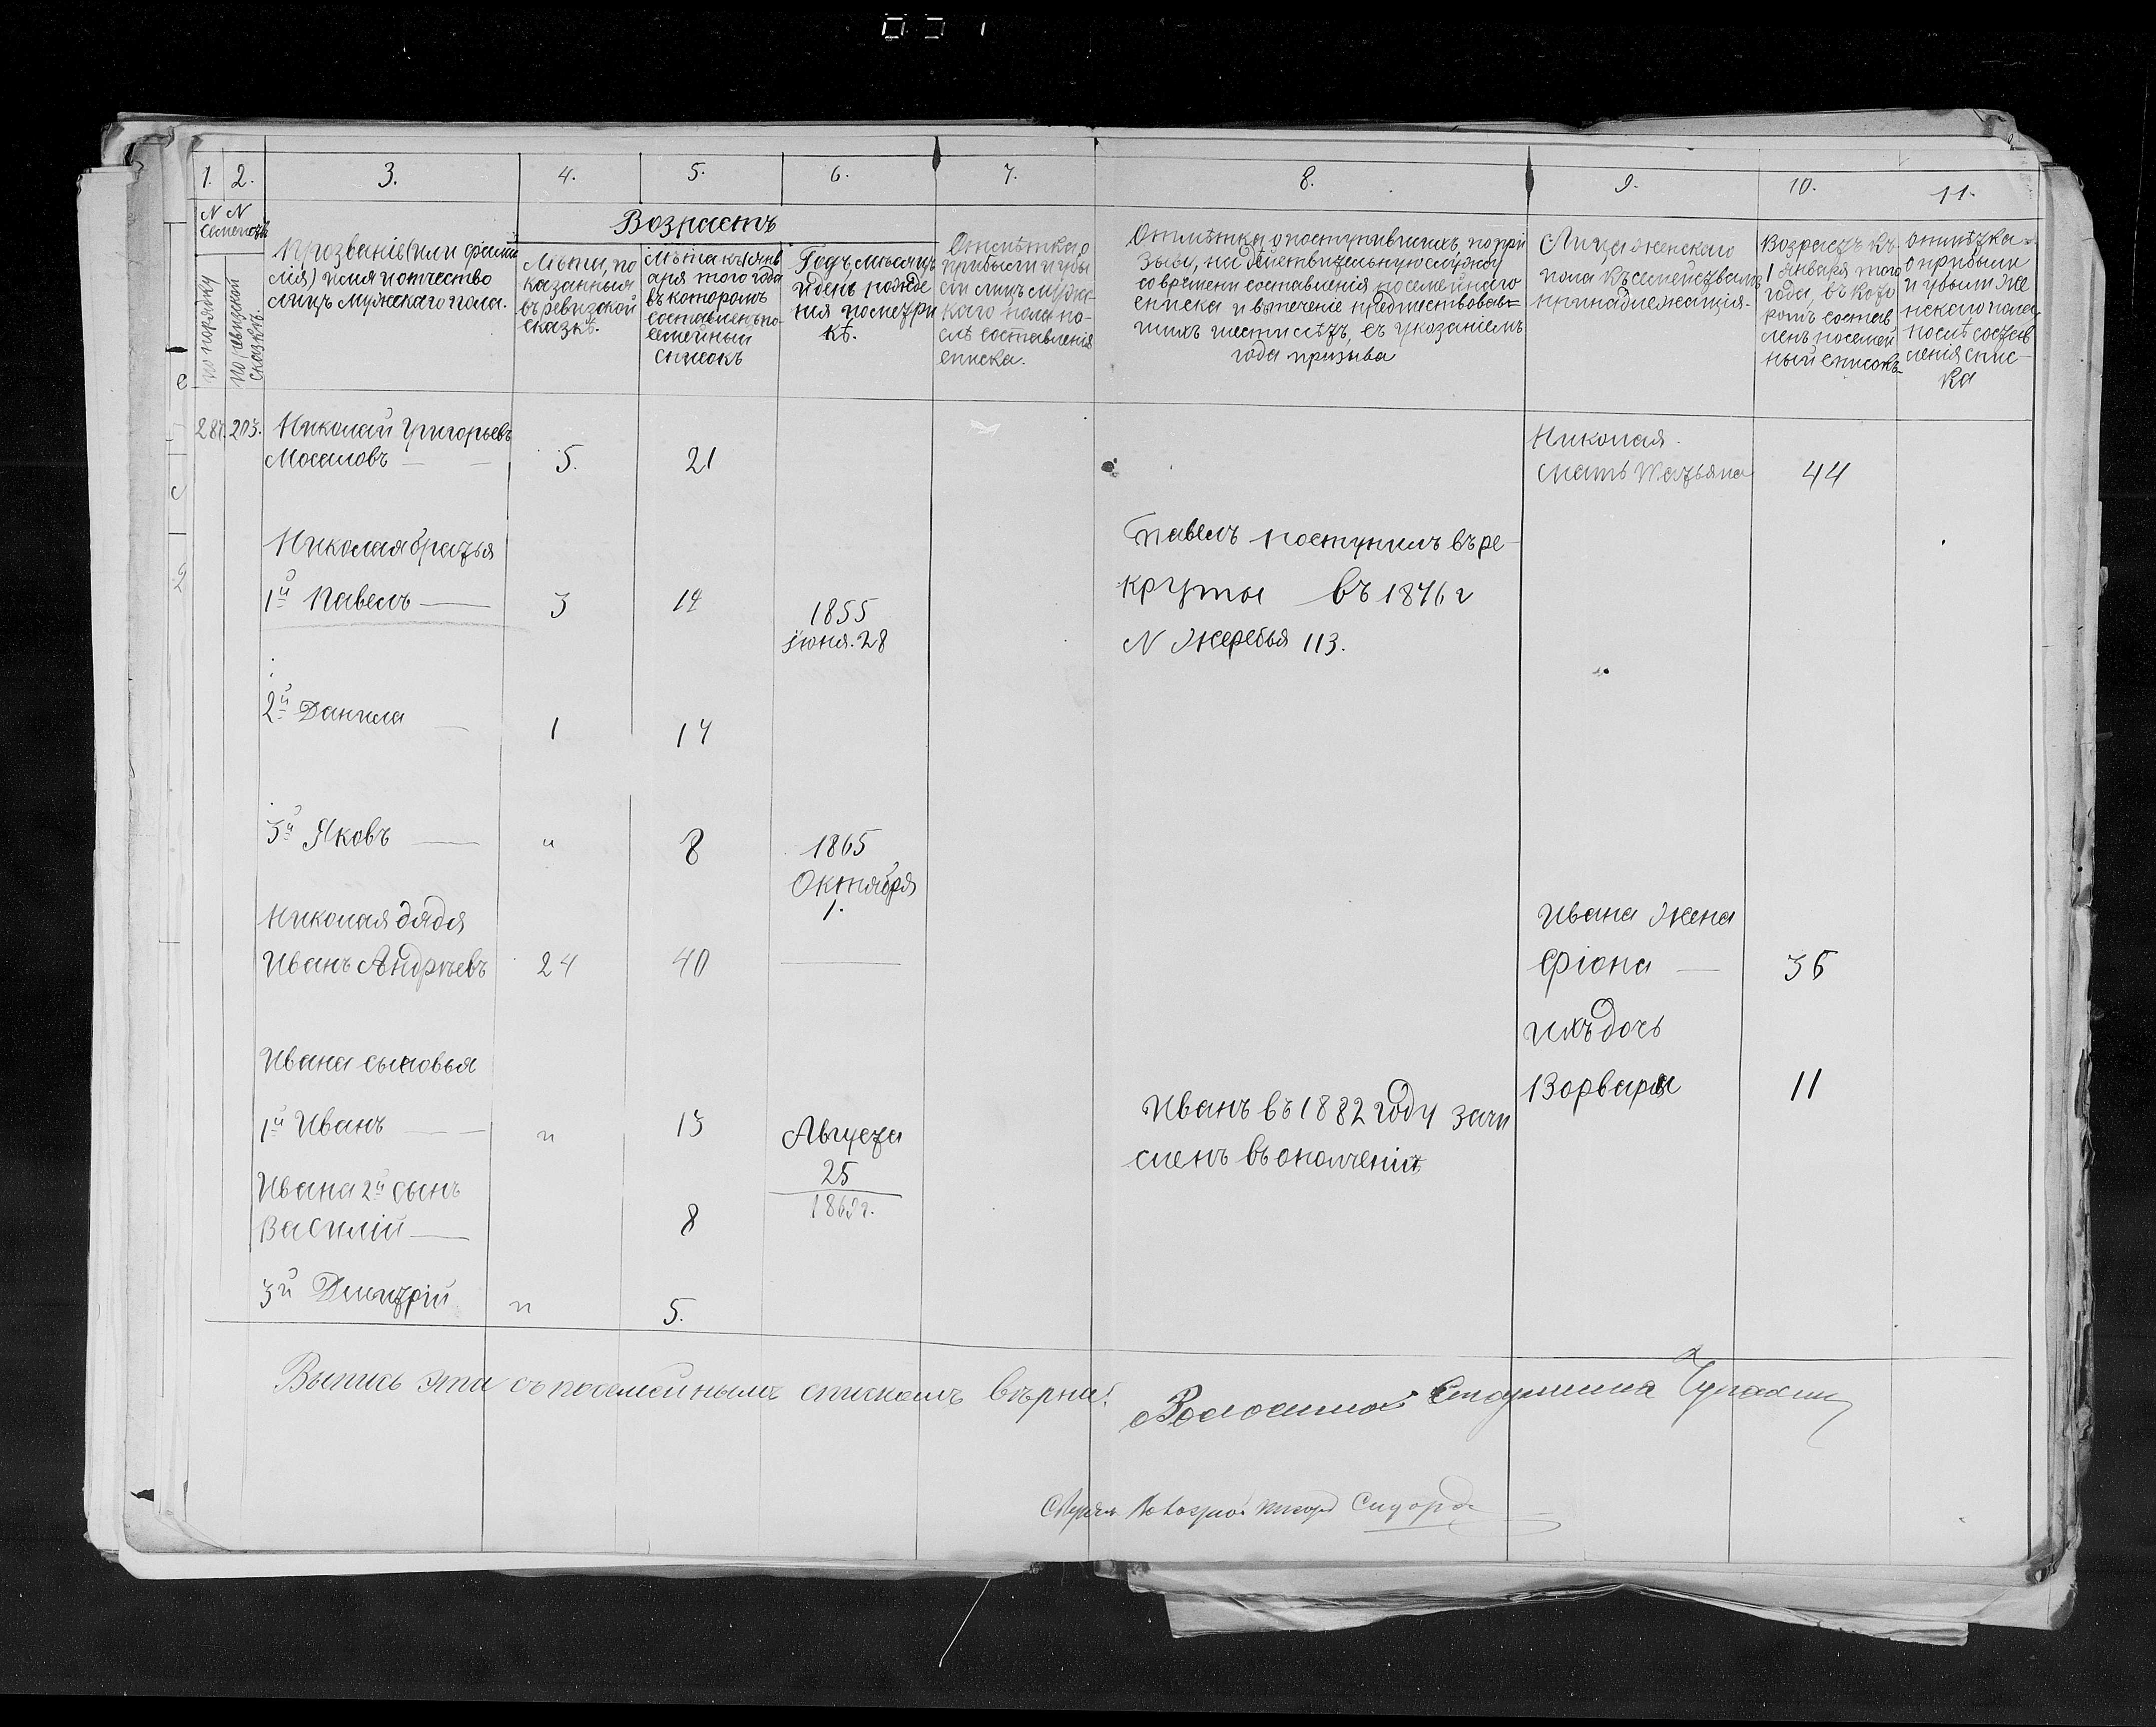 1.
2.
3.
4.
5.
6.
7.
8.
9.
10.
11.
N N
Семействъ
по порядку
по ревизской
сказкѣ.
Прозваніе (или фами
лія) имя и отчество
лицъ мужескаго пола.
Возрастъ
Лѣта, по
казанныя
въ ревизской
сказкѣ.
Лѣта къ 1 янв
аря того года
въ которомъ
составленъ по-
семейный
списокъ
Годъ, мѣсяцъ
и день рожде
нія по метри
кѣ.
Отмѣтка о
прибыли и убы
ли лицъ муже-
скаго пола по-
слѣ составленія
списка.
Отмѣтка о поступившихъ по при
зыву, на действительную службу
со времени составленія посемейнаго
списка и втеченіе предшествовав=
шихъ шести лѣтъ, съ указаніемъ
года призыва
Лица женскаго
пола къ семействамъ
принадлежащія.
Возрастъ къ
1 января того
года, въ кото
ромъ состав
ленъ посемей
ный списокъ
отмѣтка
о прибыли
и убыли же
нскаго пола
послѣ состав
ленія спис-
ка
287. 213. Николай Григорьевъ
Моселовъ — — 5. 21
Николая
мать Татьяна 44
Николая братья
1й Павелъ — 3 19 1855
іюня. 28
Павелъ поступилъ въ ре-
круты въ 1876 г
N жеребья 113.
2й Данила — 1 17
3й Яковъ — " 8 1865
Октября
1.
Николая дядя
Иванъ Андреевъ 24 40 —
Ивана жена
Фіона — 36
ихъ дочь
Ворвара 11
Ивана сыновья
1й Иванъ — — " 13 Августа
25
186 г.
Иванъ въ 1882 году зачи
сленъ въ ополченіе
Ивана 2й сынъ
Василій — 8
3й Дмитрій " 5.
Выпись эта съ посемейнымъ спискомъ вѣрна:
Волостной Старшина
Писарь